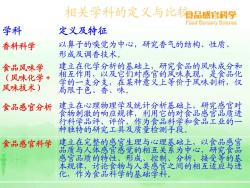 相关学科的定义与比较
食品感官科学
Food Sensory Science
学科 定义及特征
香料科学 以鼻子的嗅觉为中心，研究香气的结构、性质、
形成及调香技术。
食品风味学 建立在化学分析的基础上，研究食品的风味成分和
（风味化学+ 相互作用，以及它们对感官的风味表现，是食品化
风味技术） 学的一支分支，在某种意义上等价于风味剖析，仅
局限于色、香、味。
食品感官分析 建立在心理物理学及统计分析基础上，研究感官对
食物刺激的响应规律，利用它的对食品感官品质进
行科学品评、评价，作为食品科学和食品工业的一
种独特的研究工具及质量检测手段。
食品感官科学 建立在完整的感官生理与心理基础上，以食品感官
品质与人体感官感觉的相互关系为中心，研究食品
感官品质的特性、形成、控制、分析、接受等的基
本规律，讨论食物与人类感官之间的相互适应与进
化，作为食品科学的基础学科。